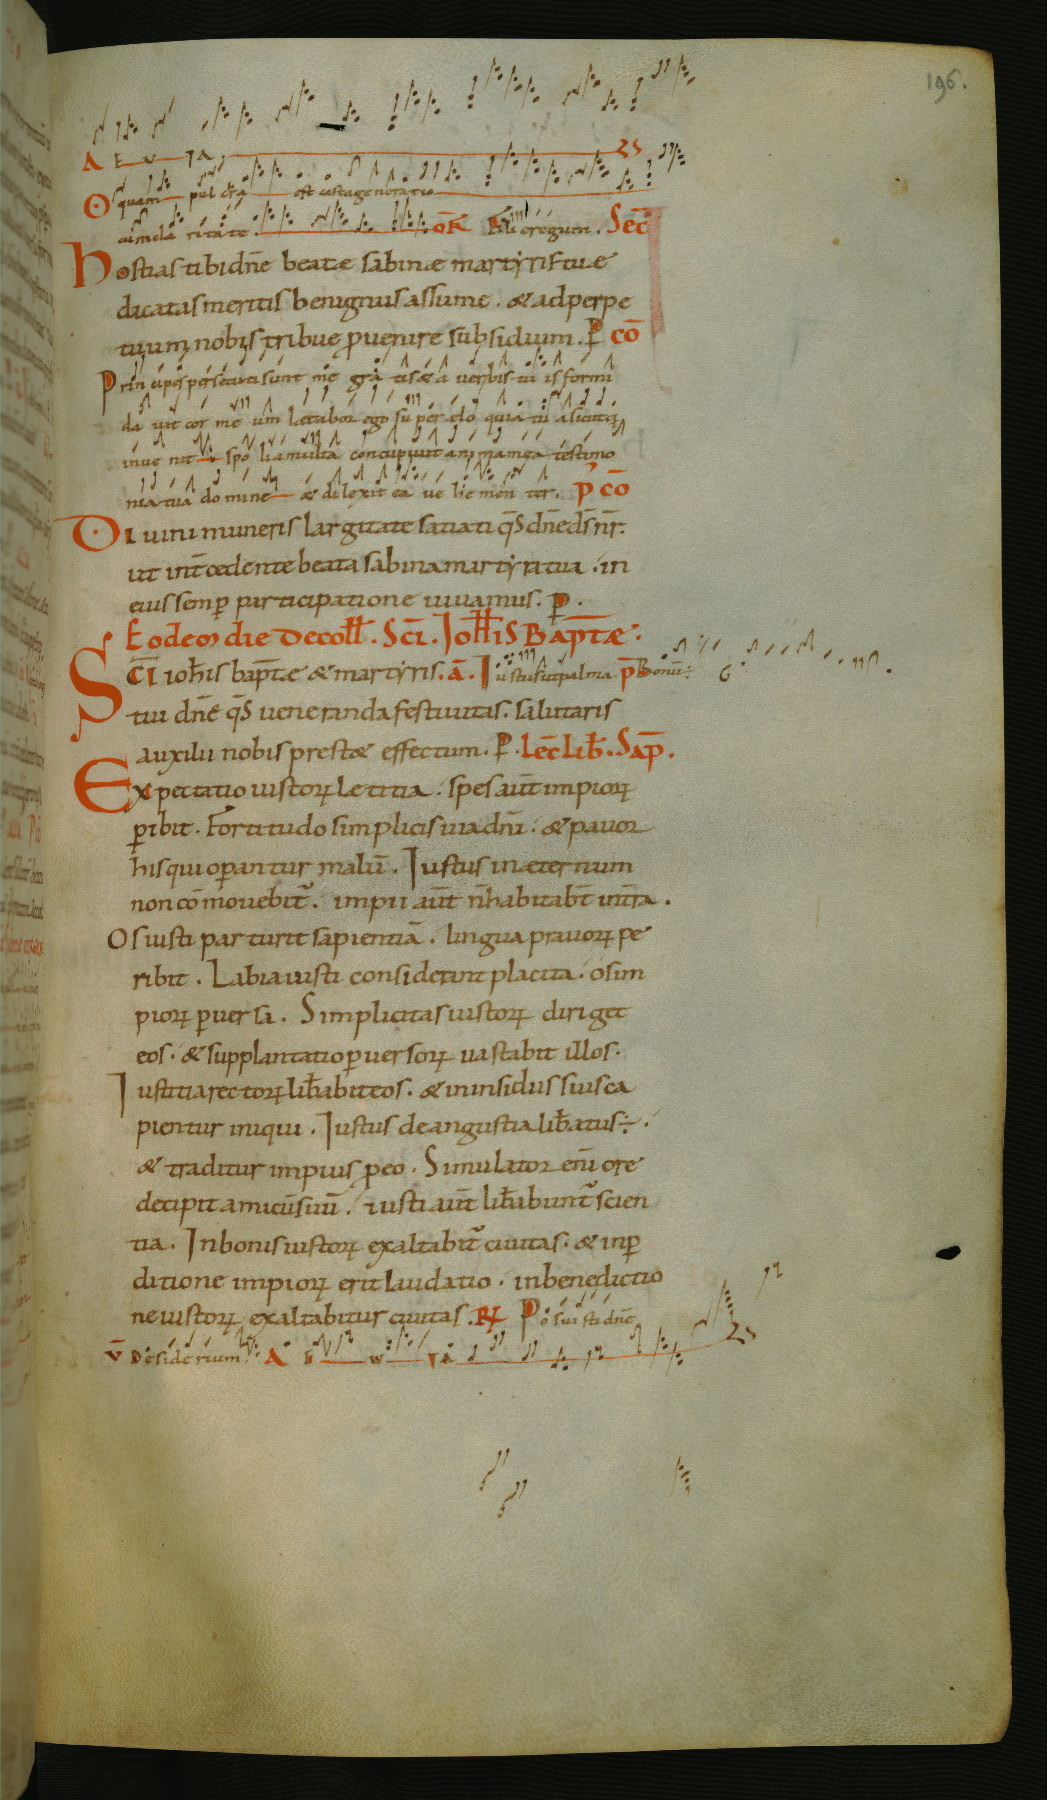 196.
A E V I A
O quam pul chra est casta generatio
cum cla ritate. OF̄ Filię regum. Sec̄
Hostias tibi dn̄e beatę sabinæ martyris tuę
dicatas meritis benignus assume. & ad perpe
tuum nobis tribue ꝓuenire subsidium. P̄ CŌ
Prin cipes persecuti sunt me gra tis & a verbis tu is formi
da vit cor me um letabor ego su per elo quia tu a sicut q
inve nit spo lia multa concupivit anima mea testimo
nia tua domine & dilexit ea ve he men ter. P̄ CŌ
Diuini muneris largitate satiati q̄s dn̄e ds̄ nr̄.
ut int̄cedente beata sabina martyra tua. in
eius semꝑ participatione uiuamus. P.
Eodem die Decoll̄. Sc̄i. Joh̄is Bapt̄æ.
Sc̄i ioh̄is bapt̄æ & martyris. ā. Iustus ut palma. p̄ Bonū:
tui dn̄e q̄s ueneranda festiuitas. salutaris
auxilii nobis prest& effectum. P. Lec̄ Lib̄. Sap̄.
Expectatio iustorꝝ letitia. spes aut̄ impiorꝝ
ꝑibit. Fortitudo simplicis uia dn̄i. & pauor
his qui oꝑantur malū. Iustus in æternum
non cōmouebit̄. impii aut̄ n̄ habitabt̄ in t̄ra.
Os iusti parturit sapientiā. lingua prauorꝝ pe
ribit. Labia iusti considerant placita. os im
piorꝝ ꝑuersa. Simplicitas iustorꝝ diriget
eos. & supplantatio ꝑuersorꝝ uastabit illos.
Iustitia rectorꝝ lib̄abit eos. & in insidiis suis ca
pientur iniqui. Iustus de angustia lib̄atus ÷.
& traditur impius ꝓ eo. Simulator eni ore
decipit amicū suū. iusti aut̄ lib̄abunt̄ scien
tia. In bonis iustorꝝ exaltabit̄ ciuitas. & in ꝑ
ditione impiorꝝ erit laudatio. in benedictio
ne iustorꝝ exaltabitur ciuitas. R̸ Posuisti dn̄e
V̄ Desiderium A E V I A